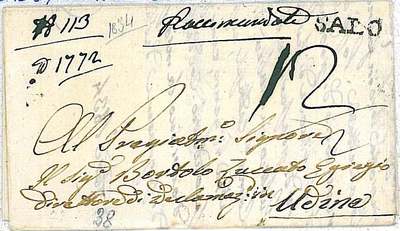 N 113
1834
Raccomandata
SALO
N 1772
12
Al Pregiatmo Signore
Il Sigr Bortolo Zuccato Egregio
Direttore di
Udine
28